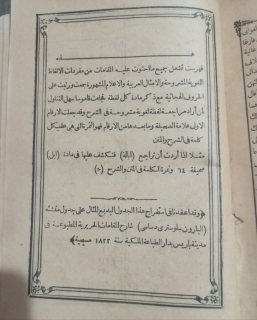 فهرست تشمل جميع ما احتوت عليه المقامات من مفردات الالفاظ
اللغوية المشروحة والامثال العربية والاعلام المشهورة جمعت ورتبت على
الحروف الهجائية مع ذكر مادة كل لفظة فجاءت قاموسا سهل التناول
لمن أراد مراجعة لفظة لغوية مشروحة في الشرح وقد جعلت الارقام
الاولى علامة الصحيفة وما بعدها من الارقام فهو النمرة التي هي عقب كل
كلمة في الشرح والمتن
مثلا اذا أردت أن تراجع (ابالة) فتكشف عليها في مادة (ابل)
صحيفة ٦٤ ونمرة الكلمة في المتن والشرح (٥)
وقد اعتمدنا في استخراج هذا الجدول البديع المثال على جدول
(البارون سلوستري دساسي) شارح المقامات الحريرية المطبوعة في
مدينة باريس بدار الطباعة الملكية سنة ١٨٢٢ مسيحية